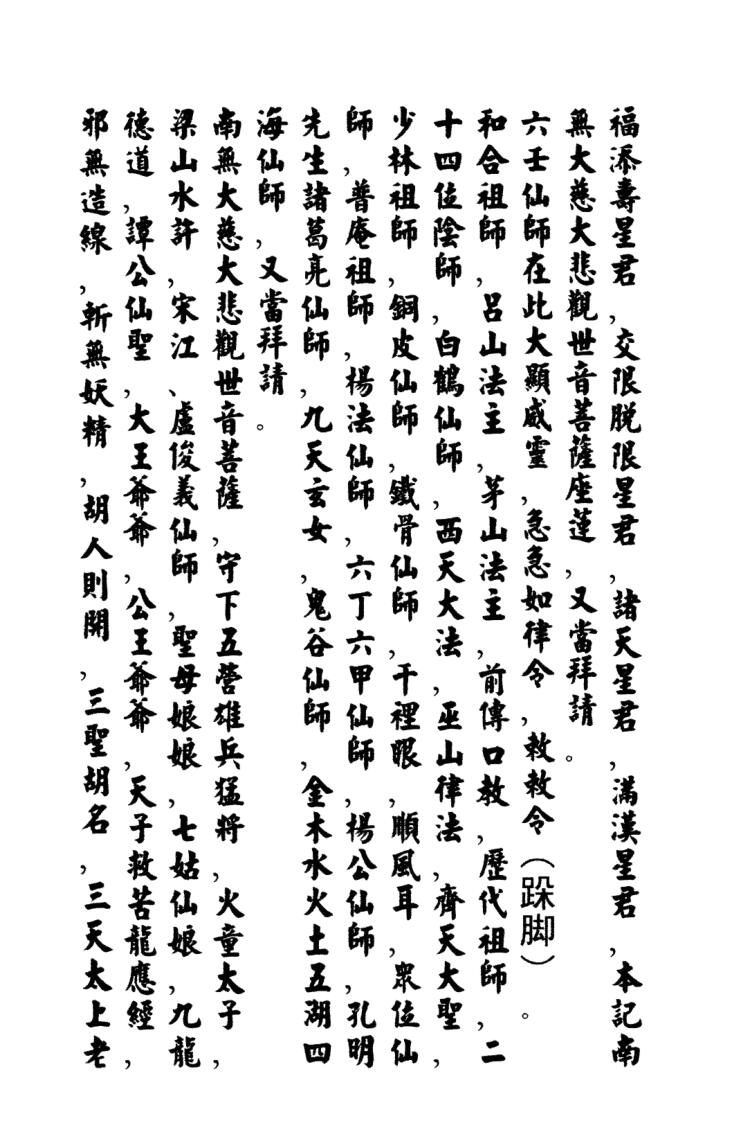 福添壽星君，交限脱限星君，諸天星君，滿漢星君，本記南
無大慈大悲觀世音菩薩座蓮，又當拜請。
六壬仙師在此大顯威靈，急急如律令，敕敕令（跺脚）。
和合祖師，呂山法主，茅山法主，前傳口教，歷代祖師，二
十四位陰師，白鶴仙師，西天大法，巫山律法，齊天大聖，
少林祖師，銅皮仙師，鐵骨仙師，千裡眼，順風耳，眾位仙
師，普庵祖師，楊法仙師，六丁六甲仙師，楊公仙師，孔明
先生諸葛亮仙師，九天玄女，鬼谷仙師，金木水火土五湖四
海仙師，又當拜請。
南無大慈大悲觀世音菩薩，守下五營雄兵猛将，火童太子，
梁山水許，宋江、盧俊義仙師，聖母娘娘，七姑仙娘，九龍
德道，譚公仙聖，大王爺爺，公王爺爺，天子救苦龍應經，
邪無造線，斬無妖精，胡人則開，三聖胡名，三天太上老